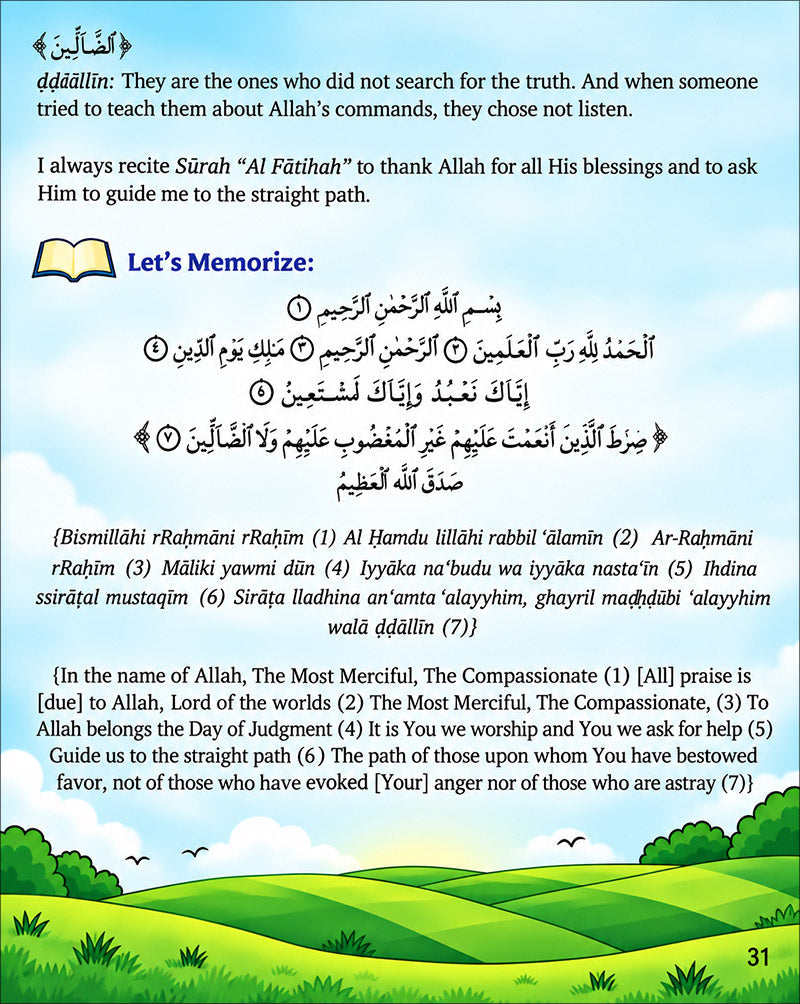 ﴿ ٱلضَّآلِّينَ ﴾
ḍḍāāllīn: They are the ones who did not search for the truth. And when someone
tried to teach them about Allah’s commands, they chose not listen.
I always recite Sūrah “Al Fātihah” to thank Allah for all His blessings and to ask
Him to guide me to the straight path.
Let’s Memorize:
بِسْمِ ٱللَّهِ ٱلرَّحْمَٰنِ ٱلرَّحِيمِ ①
ٱلْحَمْدُ لِلَّهِ رَبِّ ٱلْعَٰلَمِينَ ② ٱلرَّحْمَٰنِ ٱلرَّحِيمِ ③ مَٰلِكِ يَوْمِ ٱلدِّينِ ④
إِيَّاكَ نَعْبُدُ وَإِيَّاكَ
﴿ صِرَٰطَ ٱلَّذِينَ أَنْعَمْتَ عَلَيْهِمْ غَيْرِ ٱلْمَغْضُوبِ عَلَيْهِمْ وَلَا ٱلضَّآلِّينَ ⑦ ﴾
صَدَقَ ٱللَّه ٱلْعَظِيمُ
{Bismillāhi rRaḥmāni rRaḥīm (1) Al Ḥamdu lillāhi rabbil ‘ālamīn (2) Ar-Raḥmāni
rRaḥīm (3) Māliki yawmi dūn (4) Iyyāka na‘budu wa iyyāka nasta‘īn (5) Ihdina
ssirāṭal mustaqīm (6) Sirāṭa lladhina an‘amta ‘alayyhim, ghayril maḍḥḍūbi ‘alayyhim
walā ḍḍāllīn (7)}
{In the name of Allah, The Most Merciful, The Compassionate (1) [All] praise is
[due] to Allah, Lord of the worlds (2) The Most Merciful, The Compassionate, (3) To
Allah belongs the Day of Judgment (4) It is You we worship and You we ask for help (5)
Guide us to the straight path (6) The path of those upon whom You have bestowed
favor, not of those who have evoked [Your] anger nor of those who are astray (7)}
31